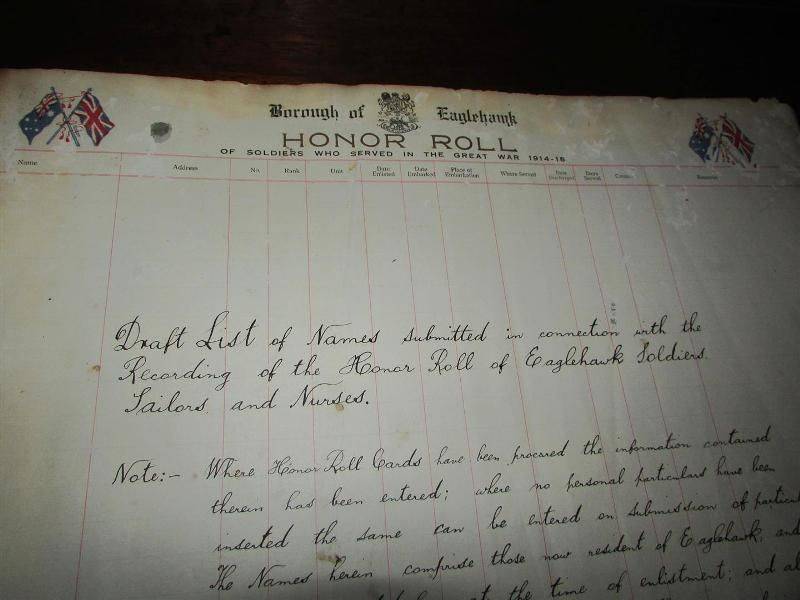 Borough of Eaglehawk
HONOR ROLL
OF SOLDIERS WHO SERVED IN THE GREAT WAR 1914-18
Name Address No. Rank Unit Date Enlisted Date Embarked Place of Embarkation Where Served Date Discharged Date Served Remarks
Draft List of Names submitted in connection with the
Recording of the Honor Roll of Eaglehawk Soldiers.
Sailors, and Nurses.
Note:- Where Honor Roll Cards have been procured the information contained
therein has been entered; where no personal particulars have been
inserted the same can be entered on submission of particul
The Names herein comprise those now resident of Eaglehawk, and
at the time of enlistment; and al